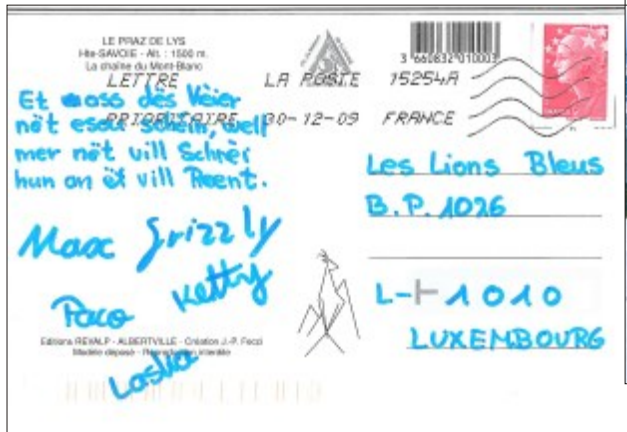 LE PRAZ DE LYS
Hte-SAVOIE - Alt. : 1500 m.
La chaîne du Mont-Blanc
3 660832 010003
LETTRE LA POSTE 15254A
PRIORITAIRE 30-12-09 FRANCE
Et ass dës Kéier
nët esou schéin, well
mer nët vill Schnéi
hun an ët vill Reent.
Max Grizzly
Ketty
Paco
Laska
Les Lions Bleus
B.P. 1026
L-1010
LUXEMBOURG
Editions REVALP - ALBERTVILLE - Création J.-P. Fecci
Modèle déposé - Reproduction interdite